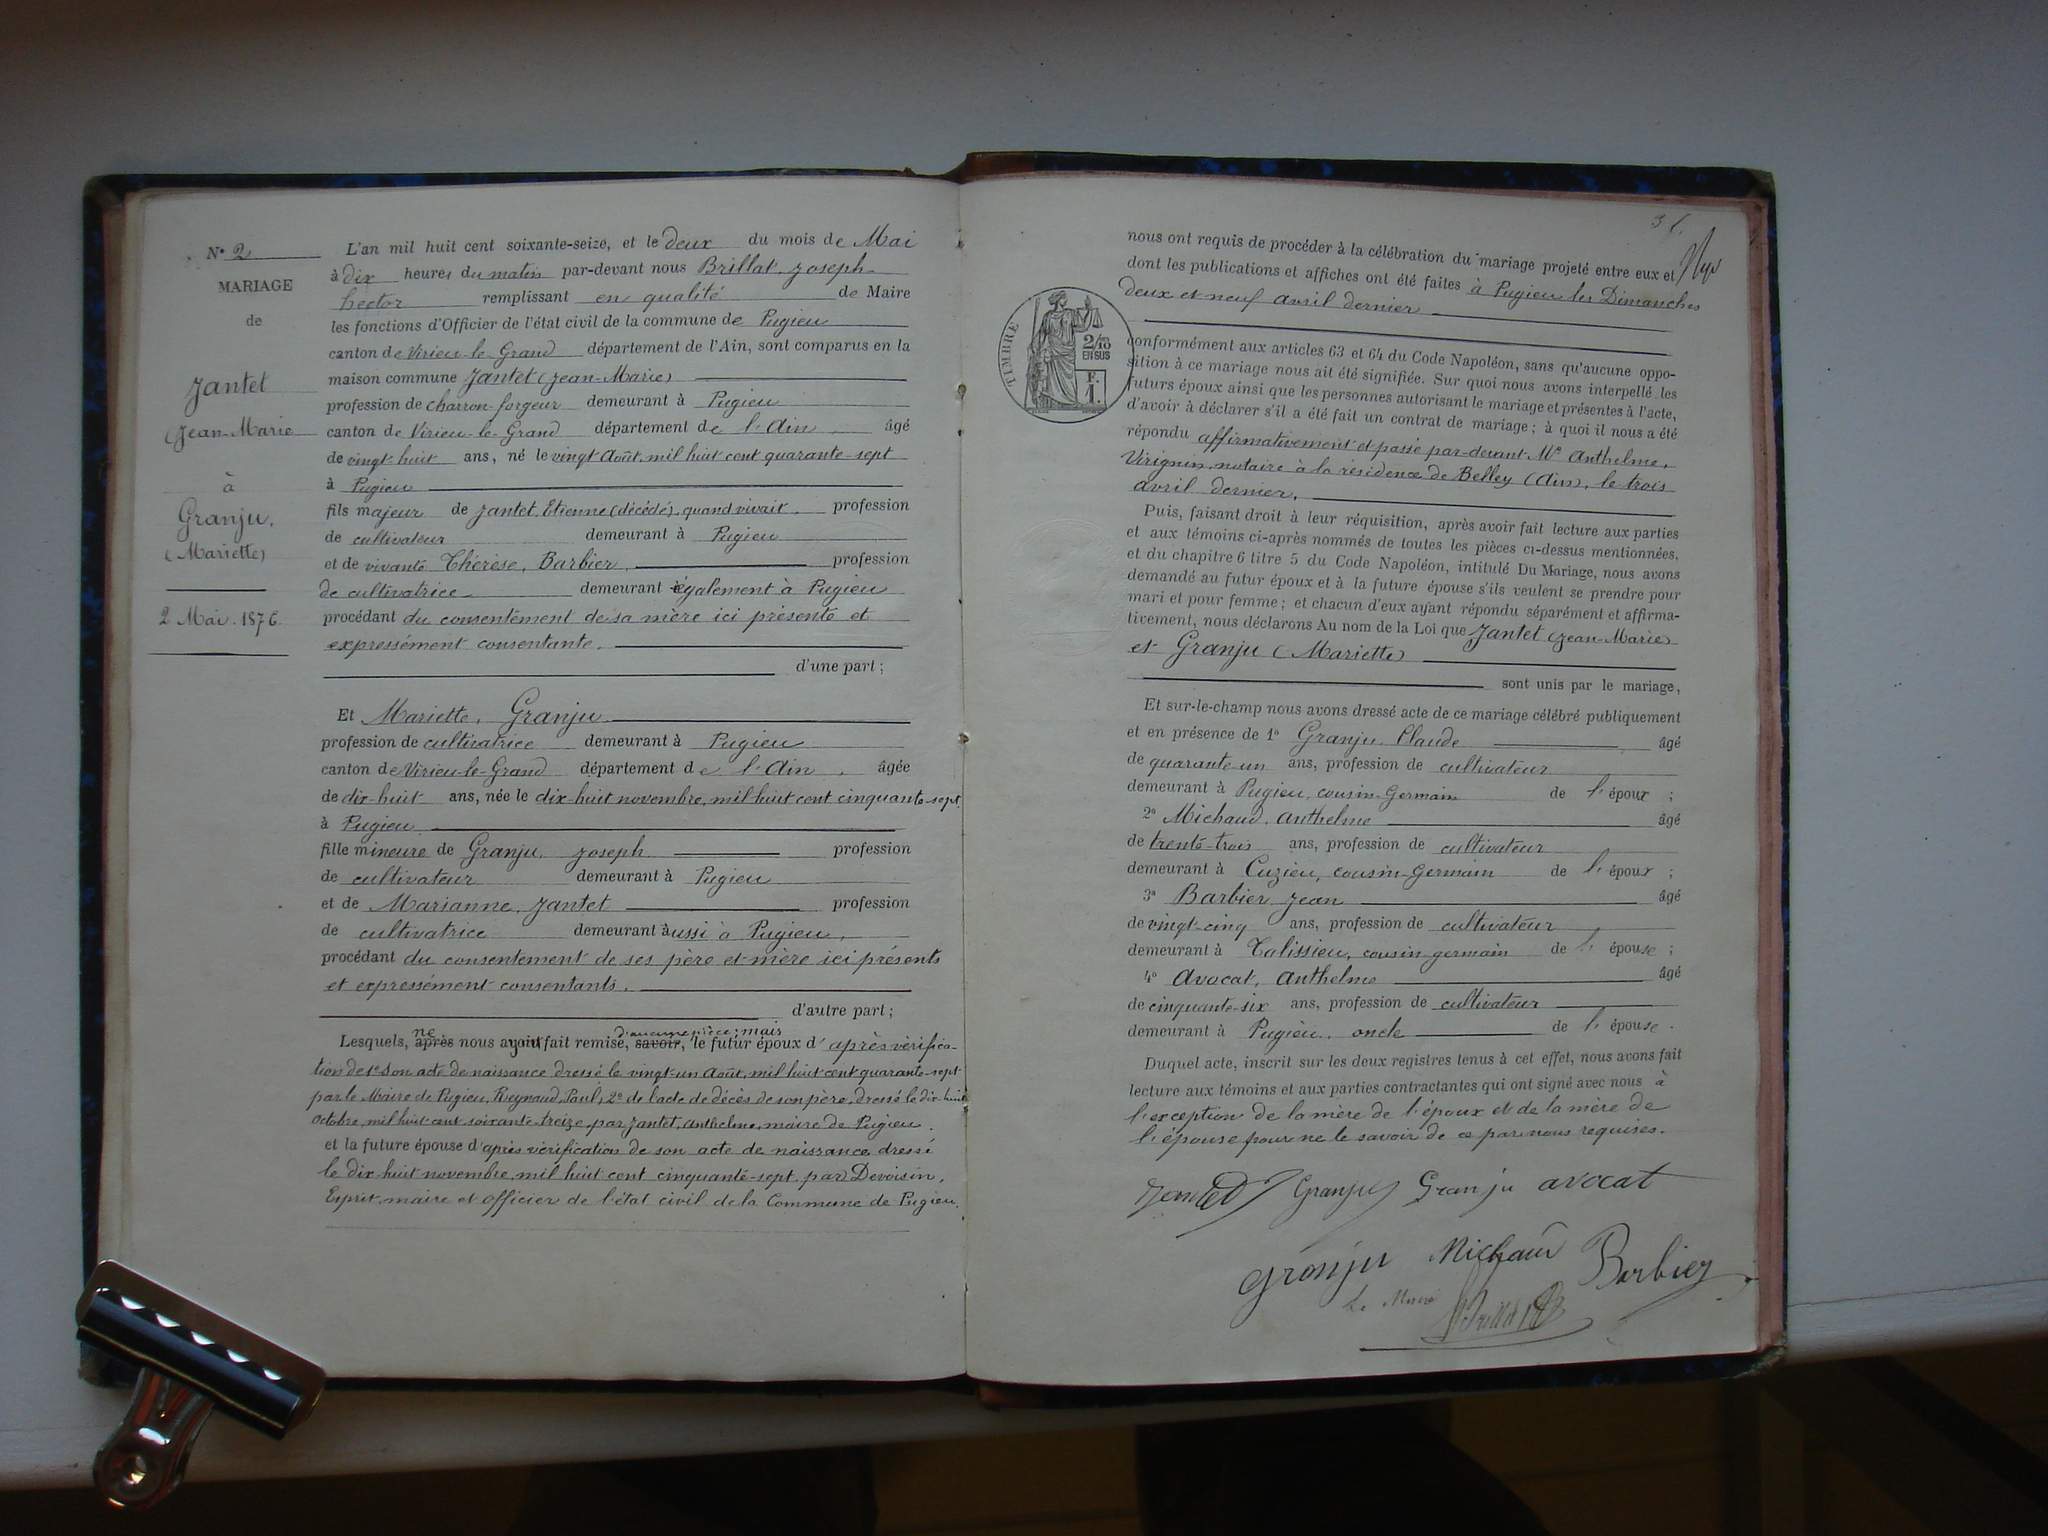 N° 2
MARIAGE
de
Jantet
(Jean-Marie
à
Granju,
(Mariette)
2 Mai. 1876.
L'an mil huit cent soixante-seize, et le deux du mois de Mai
à dix heures du matin par-devant nous Brillat, Joseph
hector remplissant en qualité de Maire
les fonctions d'Officier de l'état civil de la commune de Pugieu
canton de Virieu-le-Grand département de l'Ain, sont comparus en la
maison commune Jantet (Jean-Marie)
profession de charron-forgeur demeurant à Pugieu
canton de Virieu-le-Grand département de l'Ain, âgé
de vingt-huit ans, né le vingt Août, mil huit cent quarante-sept
à Pugieu
fils majeur de Jantet, Etienne (décédé), quand vivait, profession
de cultivateur demeurant à Pugieu
et de vivante Thérèse, Barbier, profession
de cultivatrice demeurant également à Pugieu
procédant du consentement de sa mère ici présente et
expressément consentante.
d'une part ;
Et Mariette, Granju
profession de cultivatrice demeurant à Pugieu
canton de Virieu-le-Grand département de l'Ain, âgée
de dix-huit ans, née le dix-huit novembre, mil huit cent cinquante-sept
à Pugieu
fille mineure de Granju, Joseph profession
de cultivateur demeurant à Pugieu
et de Marianne, Jantet profession
de cultivatrice demeurant aussi à Pugieu,
procédant du consentement de ses père et mère ici présents
et expressément consentants.
d'autre part ;
ne d'aucune pièce ; mais
Lesquels, après nous ayant fait remise, savoir, le futur époux d'après vérifica-
tion de 1° son acte de naissance dressé le vingt-un Août, mil huit cent quarante-sept
par le Maire de Pugieu, Reynaud, Paul, 2° de l'acte de décès de son père, dressé le dix-huit
Octobre, mil huit cent soixante-treize, par Jantet, Anthelme, maire de Pugieu.
et la future épouse d'après vérification de son acte de naissance dressé
le dix-huit novembre, mil huit cent cinquante-sept, par Devoisin,
Esprit, maire et officier de l'état civil de la Commune de Pugieu.
31.
nous ont requis de procéder à la célébration du mariage projeté entre eux et
dont les publications et affiches ont été faites à Pugieu les Dimanches
deux et neuf avril dernier
TIMBRE
2/10
EN SUS
F.
1.
conformément aux articles 63 et 64 du Code Napoléon, sans qu'aucune oppo-
sition à ce mariage nous ait été signifiée. Sur quoi nous avons interpellé les
futurs époux ainsi que les personnes autorisant le mariage et présentes à l'acte,
d'avoir à déclarer s'il a été fait un contrat de mariage ; à quoi il nous a été
répondu affirmativement et passé par-devant Me Anthelme,
Virignin, notaire à la résidence de Belley (Ain), le trois
avril dernier,
Puis, faisant droit à leur réquisition, après avoir fait lecture aux parties
et aux témoins ci-après nommés de toutes les pièces ci-dessus mentionnées,
et du chapitre 6 titre 5 du Code Napoléon, intitulé Du Mariage, nous avons
demandé au futur époux et à la future épouse s'ils veulent se prendre pour
mari et pour femme ; et chacun d'eux ayant répondu séparément et affirma-
tivement, nous déclarons Au nom de la Loi que Jantet (Jean-Marie)
et Granju (Mariette)
sont unis par le mariage,
Et sur-le-champ nous avons dressé acte de ce mariage célébré publiquement
et en présence de 1° Granju, Claude âgé
de quarante-un ans, profession de cultivateur
demeurant à Pugieu, cousin-Germain de l'époux ;
2° Michaud, anthelme âgé
de trente-trois ans, profession de cultivateur
demeurant à Cuzieu, cousin-Germain de l'époux ;
3° Barbier, Jean âgé
de vingt-cinq ans, profession de cultivateur
demeurant à Talissieu, cousin germain de l'épouse ;
4° Avocat, anthelme âgé
de cinquante-six ans, profession de cultivateur
demeurant à Pugieu, oncle de l'épouse.
Duquel acte, inscrit sur les deux registres tenus à cet effet, nous avons fait
lecture aux témoins et aux parties contractantes qui ont signé avec nous à
l'exception de la mère de l'époux et de la mère de
l'épouse pour ne le savoir de ce par nous requises.
Jantet Granju Granju avocat
granju Michaud Barbier
Le Maire